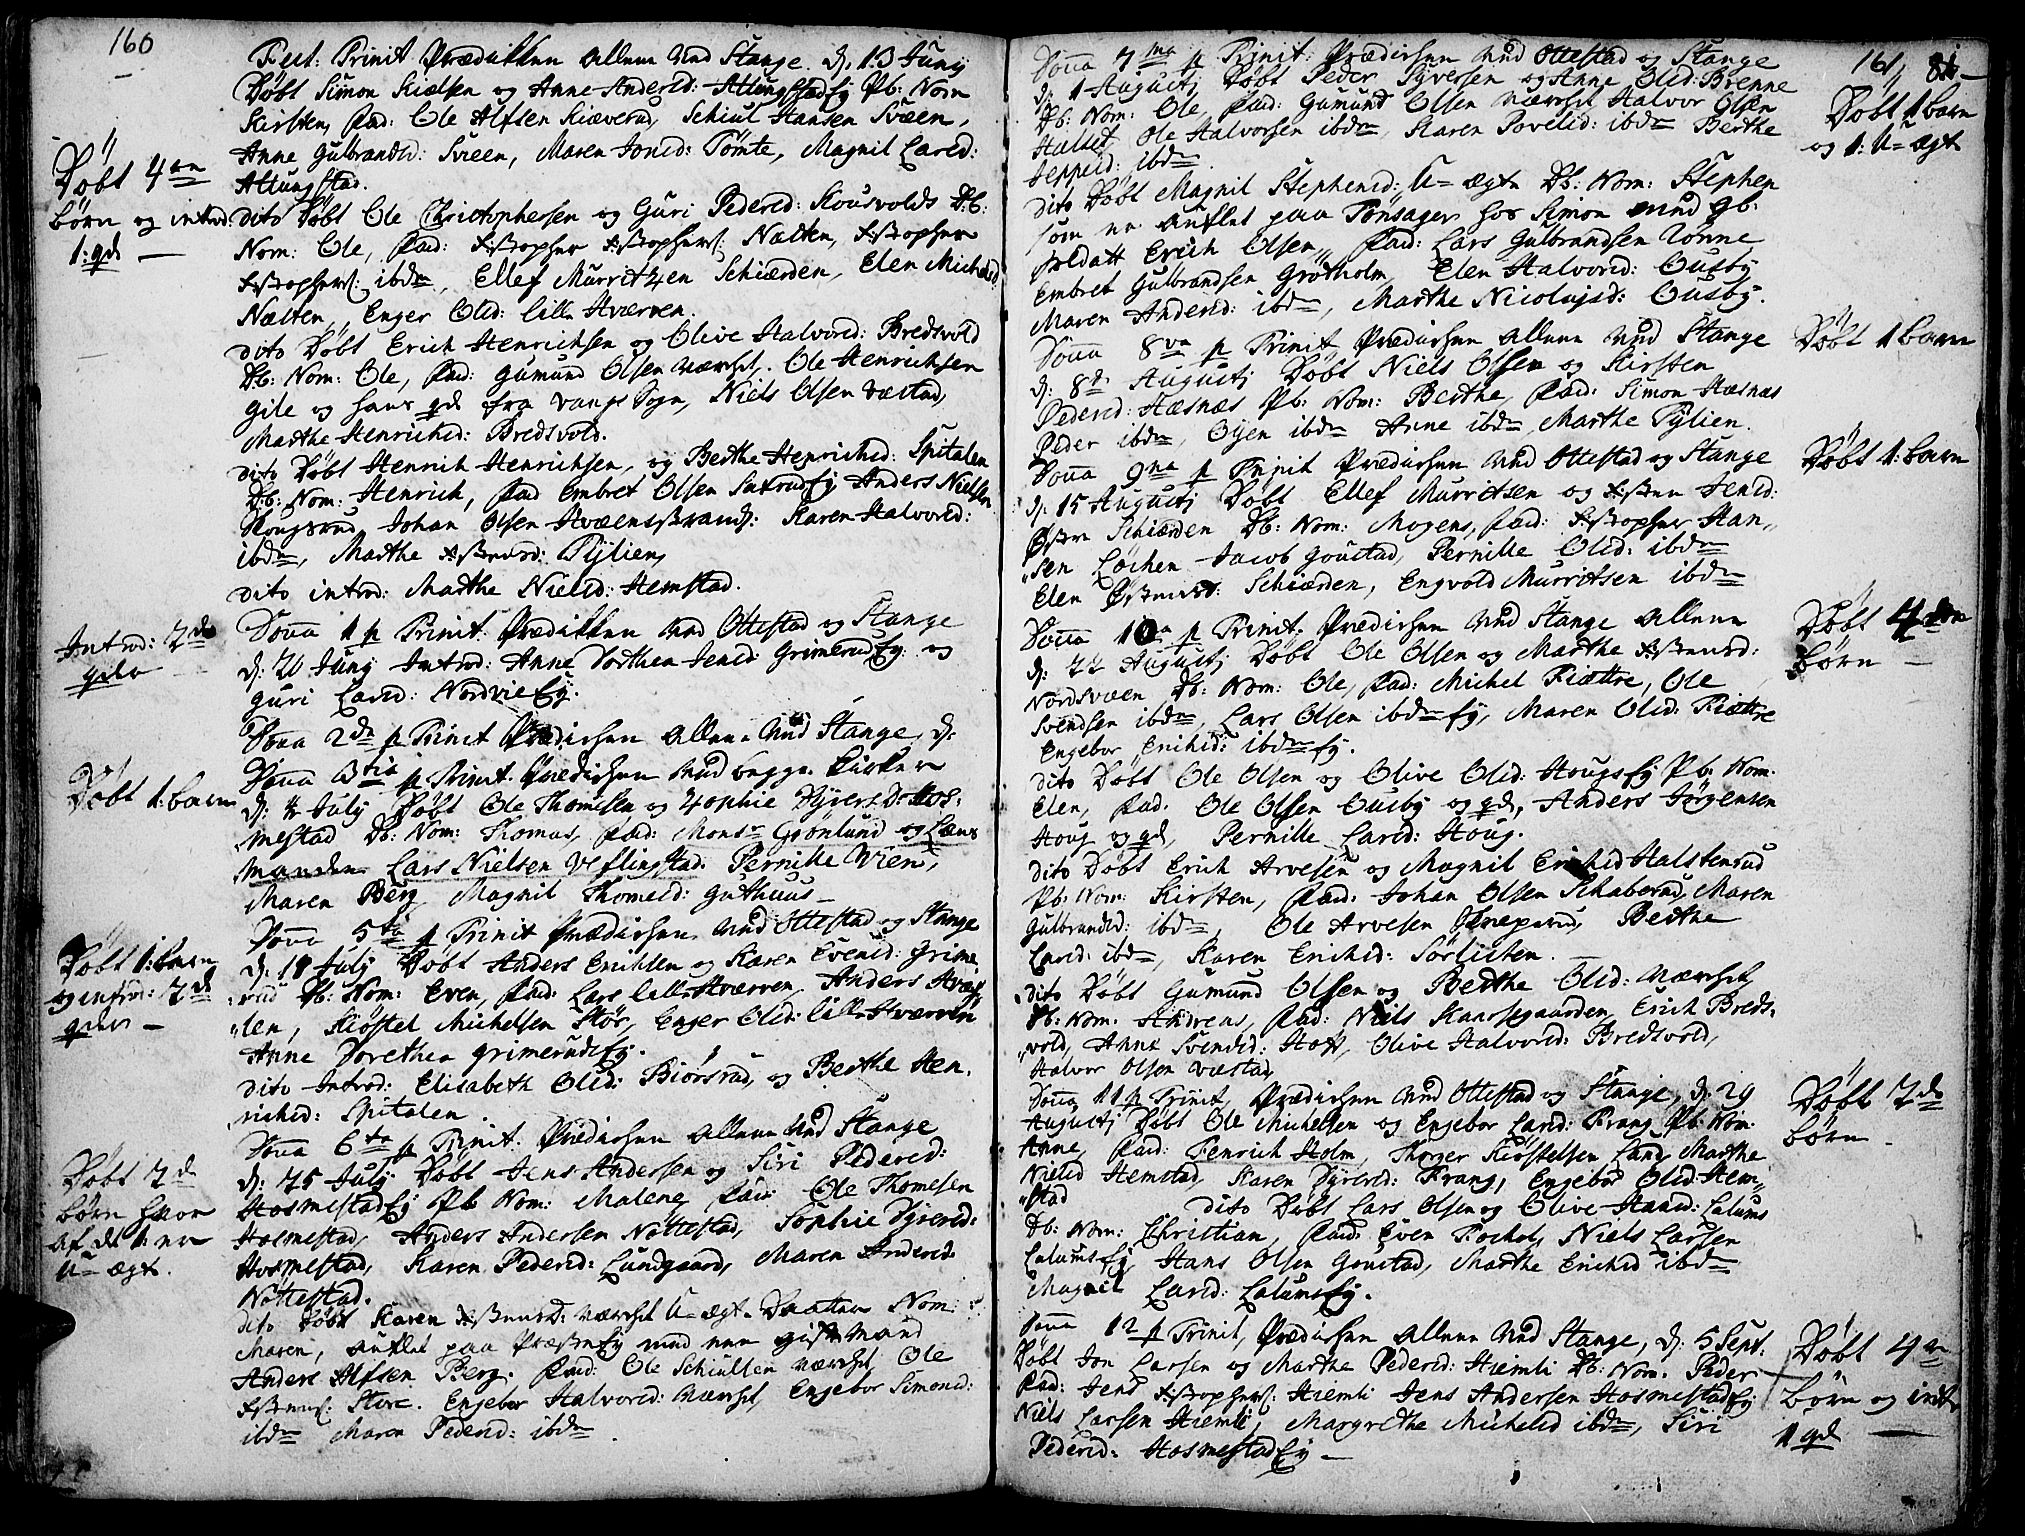 160
Fest: Trinit Prædikken allene ved Stange. d. 13 Junij
Døbt Simon Kielsen og Anne Andersd: AttungstadEy Pb: Nom
Kirsten, Fad: Ole Alfsen Kiæverud, Schiul Hansen Svæen,
Anne Gulbrandsd: Svieen, Maren Jonsd: Tømte, Magnil Larsd:
Attungstad.
Døbt 4re
børn og introd:
1: qd —
dito Døbt Ole Christophersen og Guri Pedersd: Skousvolds Db:
Nom: Ole, Fad: Xstopher Xstophers: Nalten, Xstopher
Xstophers: ibdm, Ellef Murritzen Schiærden, Elen Michelsd
Nælten, Enger Olsd: lille Hværven.
dito Døbt Erich Henrichsen og Olive Halvorsd: Bredsvold
Db: Nom: Ole, Fad: Gumund Olsen Nærset. Ole Henrichsen
Gile og hans qd fra Vangs Sogn, Niels Olsen Væstad,
Marthe Henrichsd: Bredsvold.
dito Døbt Henrich Henrichsen, og Berthe Henrichsd: Spitalen
Db: Nom: Henrich, Fad Embret Olsen SaxrudEy Anders Nielsen
Hougsrud, Johan Olsen Hvæenstrand: Karen Halvorsd:
ibdm, Marthe Xstensd: Tylien,
dito introd: Marthe Nielsd: Hemstad.
Introd: 2de
qder
Dona 1 p Trinit: Prædikken ved Ottestad og Stange
d: 20 Junij Introd: Anne Dorthea Jensd GrimerudEy: og
Guri Larsd: NordvieEy.
Dona 2da p Trinit Prædichen allene ved Stange, d:
Døbt 1: barn
Dona 3tia p Trinit. Prædichen ved begge Kirker
d: 4 Julij Døbt Ole Thomesen og Sophie Syversd: Hos-
mestad Db: Nom: Thomas, Fad: Monsr Grønlund og Lens
manden Lars Nielsen Veflingstad. Pernille Wien,
Maren Berg Magnil Thomesd: Guthuus —
Døbt 1: barn
og introd: 2de
qder —
Dona 5ta p Trinit Prædichen ved Ottestad og Stange
d: 18 Julij Døbt Anders Erichsen og Karen Evensd: Grime
rud Db: Nom: Even, Fad: Lars lille Hværven, Anders Hvæs
len, Kiøstel Michelsen Stør, Enger Olsd: lille Hværven
Anne Dorethea GrimerudsEy.
dito Introd: Elisabeth Olsd: Biørsrud, og Berthe Hen-
richsd: Spitalen.
Døbt 2de
børn hvor
af det 1 er
U-ægt.
Dona 6ta p Trinit. Prædichen allene ved Stange
d: 25 Julij Døbt Jens Andersen og Siri Pedersd:
HosmestadEy Pb Nom: Malene Fad: Ole Thomesen
Hosmestad, Anders Andersen Nøttestad, Sophie Syversd:
Hosmestad, Karen Pedersd: Lundgaard, Maren Andersd
Nøttestad.
dito Døbt Karen Xstensd: Nærset U-ægt Daatter Nom:
Maren, auflet paa PræstEy med een gift Mand
Anders Alfsen Berg. Fad: Ole Schiullen Nærset, Ole
Xstens: Store. Engebor Halvorsd: Nærset, Engebor Simensd:
ibdm Maren Pedersd: ibdm
161, 81
Dona 7ma p Trinit: Prædichen ved Ottestad og Stange
d: 1 Augustij Døbt Peder Syversen og Anne Olsd: Brenne
Db: Nom: Ole, Fad: Gumund Olsen Nærset Halvor Olsen
Halset Ole Halvorsen ibdm, Karen Povelsd: ibdm Berthe
Jeppesd: ibdm
Døbt 1 barn
og 1: U-ægt
dito Døbt Magnil Stephensd; U-ægte Db: Nom: Stephen
som er auflet paa Tønsager hos Simon med gb:
Soldatt Erich Olsen, Fad: Lars Gulbrandsen Rønne
Embret Gulbrandsen Grøtholm, Elen Halvorsd: Ousby
Maren Andersd: ibdm, Marthe Nicolajsd: Ousby.
Døbt 1 barn
Dona 8va p Trinit Prædichen allene ved Stange
d: 8de Augustij Døbt Niels Olsen og Kirsten
Pedersd: Hæsnæs Pb: Nom: Berthe, Fad: Simon Hæsnæs
Peder ibdm, Oljen ibdm Anne ibdm, Marthe Tylien.
Døbt 1: barn
Dona 9na p Trinit Prædichen ved Ottestad og Stange
d: 15 Augustij Døbt Ellef Murritsen og Xstine Jensd:
Østre Schiærden Db: Nom: Mogens, Fad: Xstopher Han-
sen Løchen Jacob Goustad, Pernille Olsd: ibdm
Elen Østensd: Schiærden, Engvold Murritsen ibdm
Døbt 4re
børn —
Dona 10a p Trinit: Prædichen ved Stange allene
d: 22 Augustij Døbt Ole Olsen og Marthe Xstensd:
Nordsvæen Db: Nom: Ole, Fad: Michel Fiættre, Ole
Svendsen ibdm, Lars Olsen ibdmEy, Maren Olsd: Fiættre
Engebor Erichsd: ibdmEy.
dito Døbt Ole Olsen og Olive Olsd: HougsEy Pb: Nom:
Elen, Fad. Ole Olsen Ousby og qd, Anders Jørgensen
Houg og qd, Pernille Larsd: Houg.
dito Døbt Erich Arvesen og Magnil Erichsd Halstenrud
Pb: Nom: Kirsten, Fad: Johan Olsen Schaberud, Maren
Gulbrandsd: ibdm, Ole Arvesen Skreperud, Berthe
Larsd: ibdm, Karen Erichsd: Sørlisten. —
dito Døbt Gumund Olsen og Berthe Olsd: Nærset,
Db: Nom: Andreas, Fad: Niels Kaarsgaarden, Erich Breds-
vold, Anne Svendsd: Hoff, Olive Halvorsd: Bredsvold,
Halvor Olsen Væstad,
Døbt 2de
børn.
Dona 11 p Trinit, Prædichen ved Ottestad og Stange, d: 29
Augustij Døbt Ole Michelsen og Engebor Larsd: Frang Pb: Nom:
Anne, Fad: Fenrich Holm, Thorger Kiøstelsen Sand, Marthe
Nielsd Hemstad, Karen Syversd: Frang, Engebor Olsd: Hem-
stad
dito Døbt Lars Olsen og Olive Hansd: Lalums
Db: Nom: Christian, Fad: Even Fochol, Niels Larsen
LalumsEy, Hans Olsen Goustad, Marthe Erichsd ibdm
Magnil Larsd: LalumsEy.
Døbt 4re
børn og intr
1 qd —
Dona 12 p Trinit, Prædichen allene ved Stange, d: 5 Sept:
Døbt Jon Larsen og Marthe Pedersd: Hiemli Db: Nom: Peder
Fad: Jens Xstophers: Hiemli Jens Andersen HosmestadEy
Niels Larsen Hiemli, Margrethe Michelsd ibdm, Siri
Pedersd: HosmestadEy —